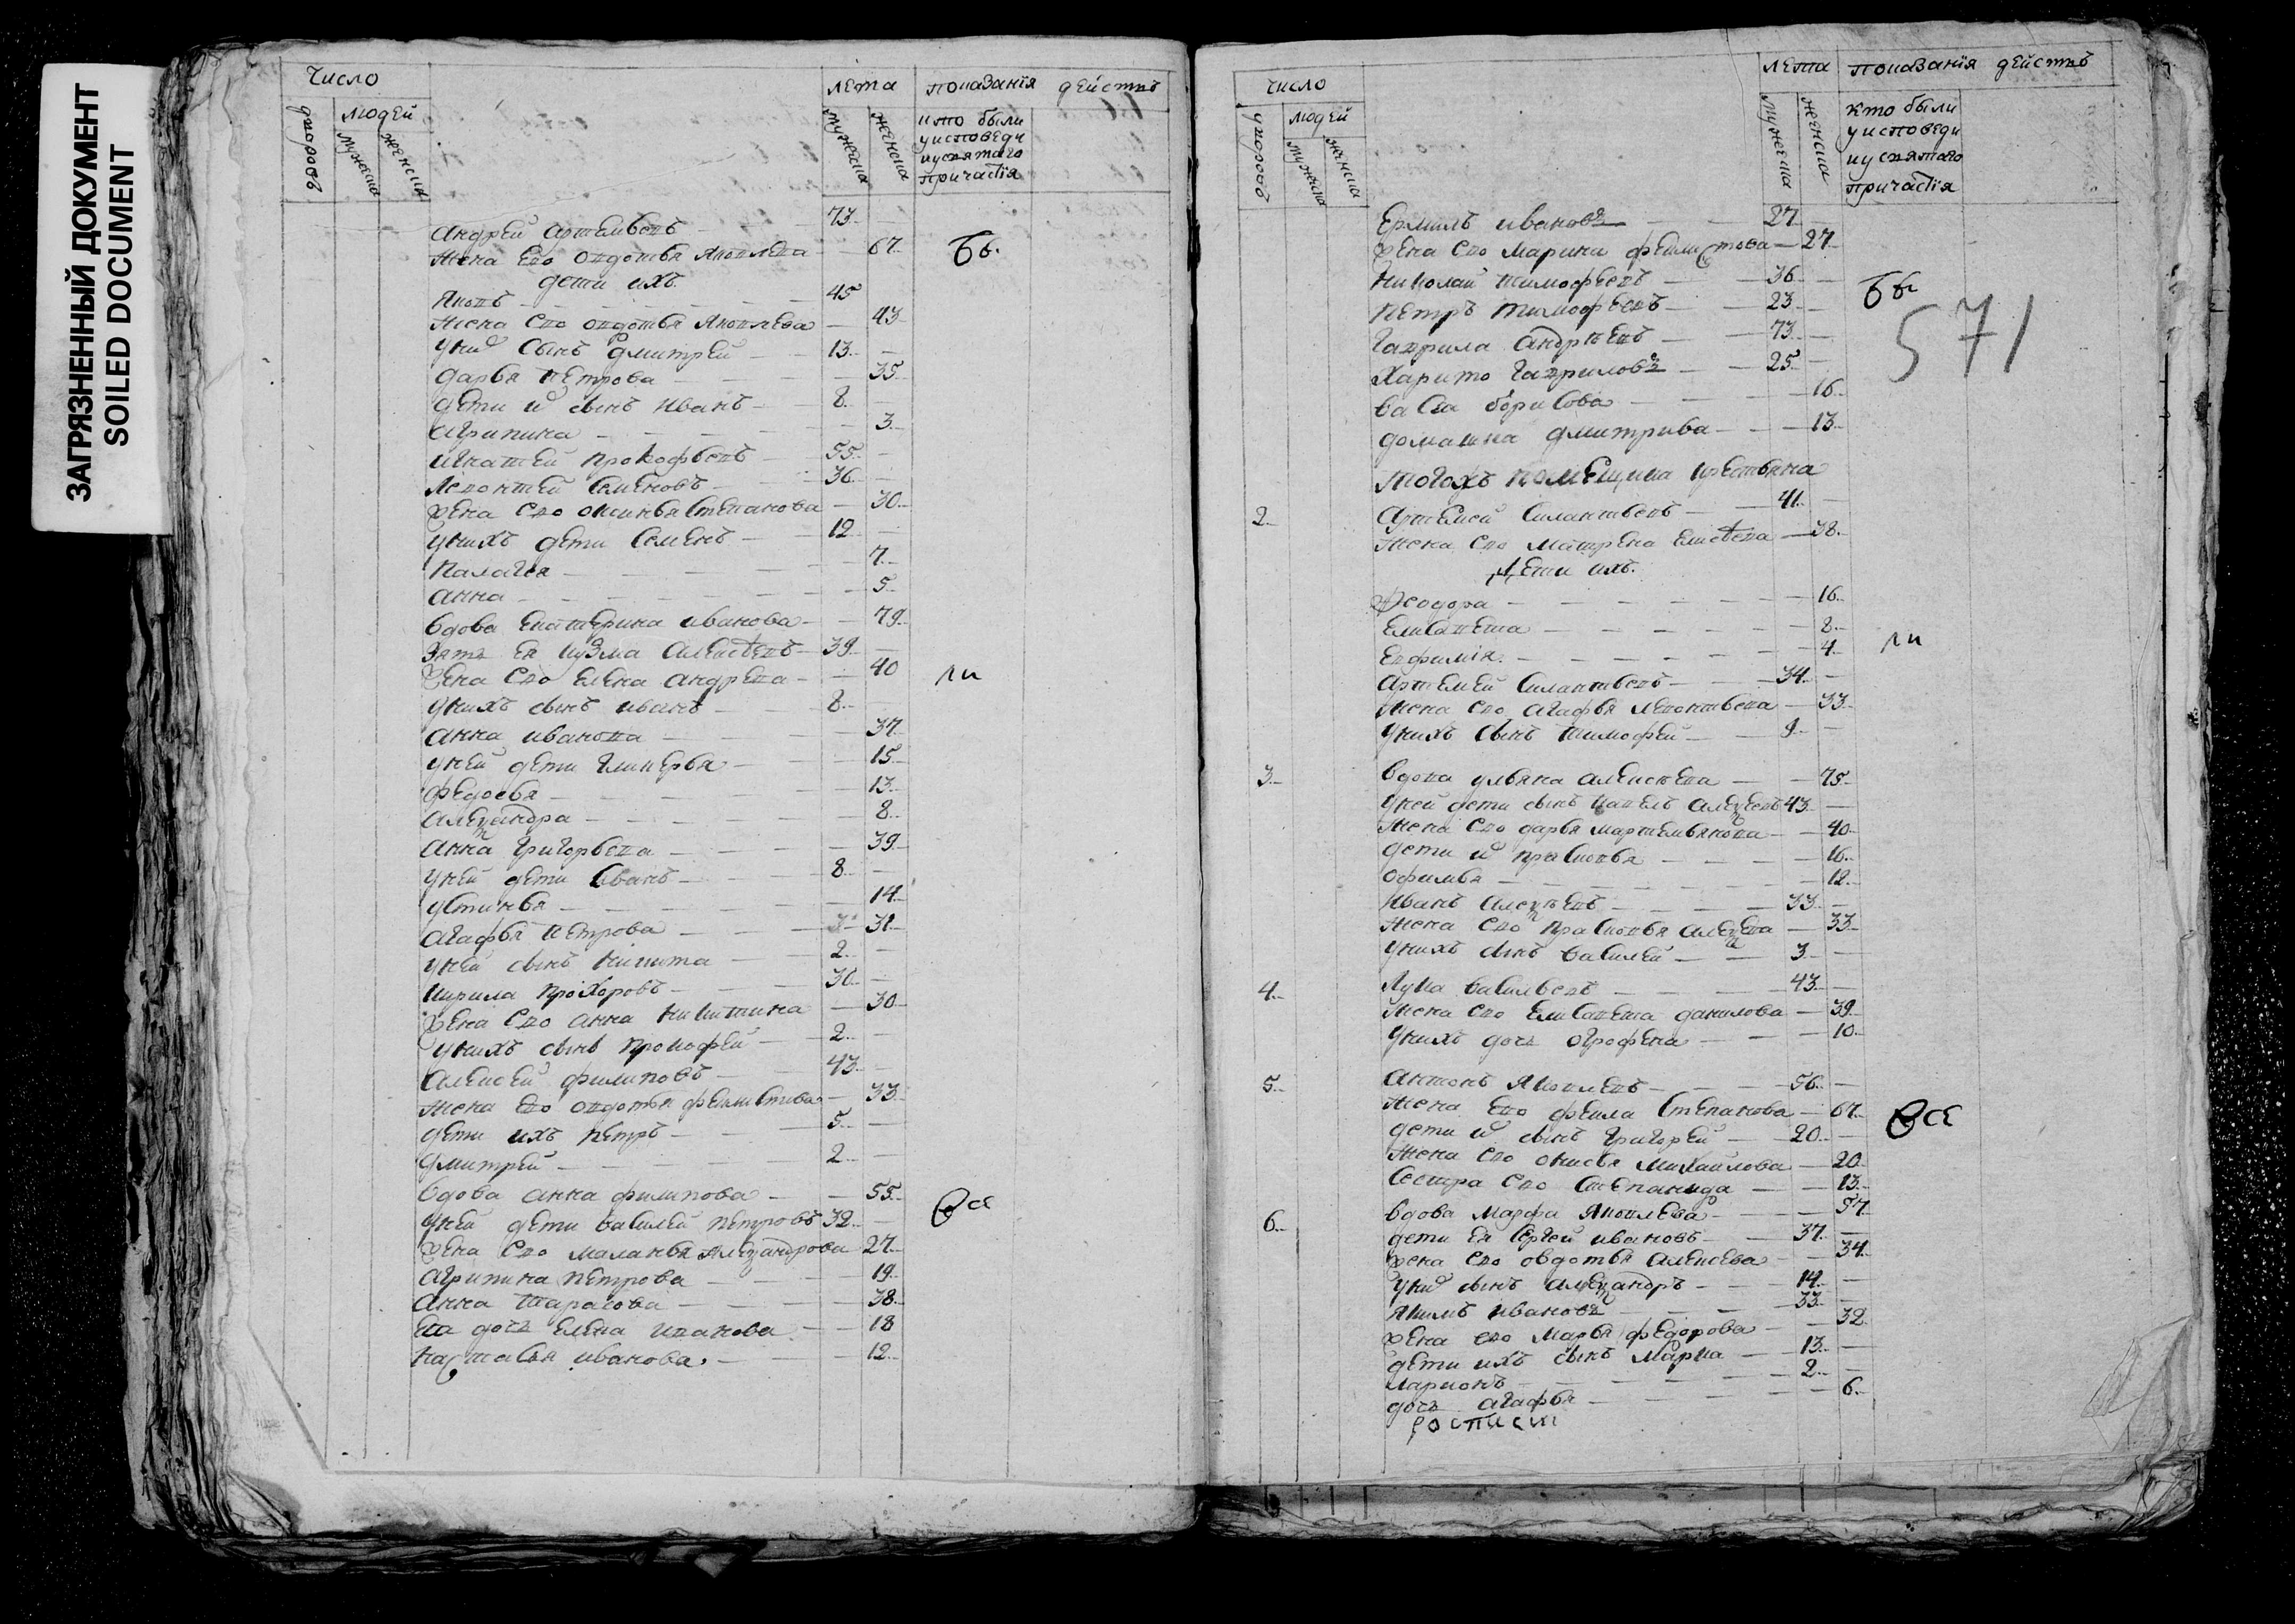 ЗАГРЯЗНЕННЫЙ ДОКУМЕНТ
SOILED DOCUMENT
Число
людей
дворовъ
мужеска
женска
лета
мужеска
женска
показанїя действъ
кто были
уисповеди
иусвятаго
причастїя
Андрей Артемьевъ 73
жена ево овдотья яковлева 67 Бы.
дети ихъ
Яковъ 45
жена ево овдотья яковлева 43
уних сынъ дмитрей 13
дарья петрова 35
дети и сынъ иванъ 8
агрипина 3
игнатей прокофьевъ 55
леонтей семеновъ 36
жена ево оксинья степанова 30
унихъ дети семенъ 12
палагея 7
анна 5
вдова екатерина иванова 79
зять ея кузма алексеевъ 39
жена ево елена андрева 40 ли
унихъ сынъ иванъ 8
анна иванова 37
уней дети гликерья 15
федосья 13
александра 8
анна григорьева 39
уней дети иванъ 8
устинья 14
агафья петрова 31
уней сынъ никита 2
кирила прохоровъ 30
жена ево анна никитина 30
унихъ сынъ прокофей 2
алексей филиповъ 43
жена ево овдотья феликстова 33
дети ихъ петръ 5
дмитрей 2
вдова анна филипова 55
уней дети василей петровъ 32 все
жена ево маланья александрова 27
агрипина петрова 19
анна тарасова 38
ея дочь елена иванова 18
настасья иванова. 12
число
людей
дворовъ
мужеска
женска
лета
мужеска
женска
показанїя действъ
кто были
уисповеди
иусвятаго
причастїя
Ермилъ ивановъ 27
жена ево марина феликстова 27
николай тимофеевъ 36 бы
петръ тимофеевъ 23
571
гаврила андреевъ 73
харито гавриловъ 25
васса борисова 16
домашна дмитрива 13
тогожъ помещика крестьяна
2 Артемей силантьевъ 41
жена ево матрена елисеева 38
дети ихъ.
феодора 16
елисавета 8
евфимїя 4 ли
артемей силантьевъ 34
жена ево агафья леонтьева 33
унихъ сынъ тимофей 9
3 вдова ульяна алексеева 75
уней дети сынъ павелъ алексеевъ 43
жена ево дарья мартемьянова 40
дети и прасковья 16
офимья 12
иванъ алексеевъ 33
жена ево прасковья алексеева 33
унихъ сынъ василей 3
4 лука васильевъ 43
жена ево елисавета данилова 39
унихъ дочь огрофена 10
5 антонъ яковлевъ 56
жена ево фекла степанова 67 все
дети и сынъ григорей 20
жена ево онисья михайлова 20
сестра ево степанида 13
6 вдова марфа яковлева 57
дети ея сергей ивановъ 37
жена ево овдотья алексеева 34
уних сынъ александръ 14
якимъ ивановъ 33
жена ево марья федорова 32
дети ихъ сынъ марка 13
ларионъ 2
дочь агафья 6
росписи